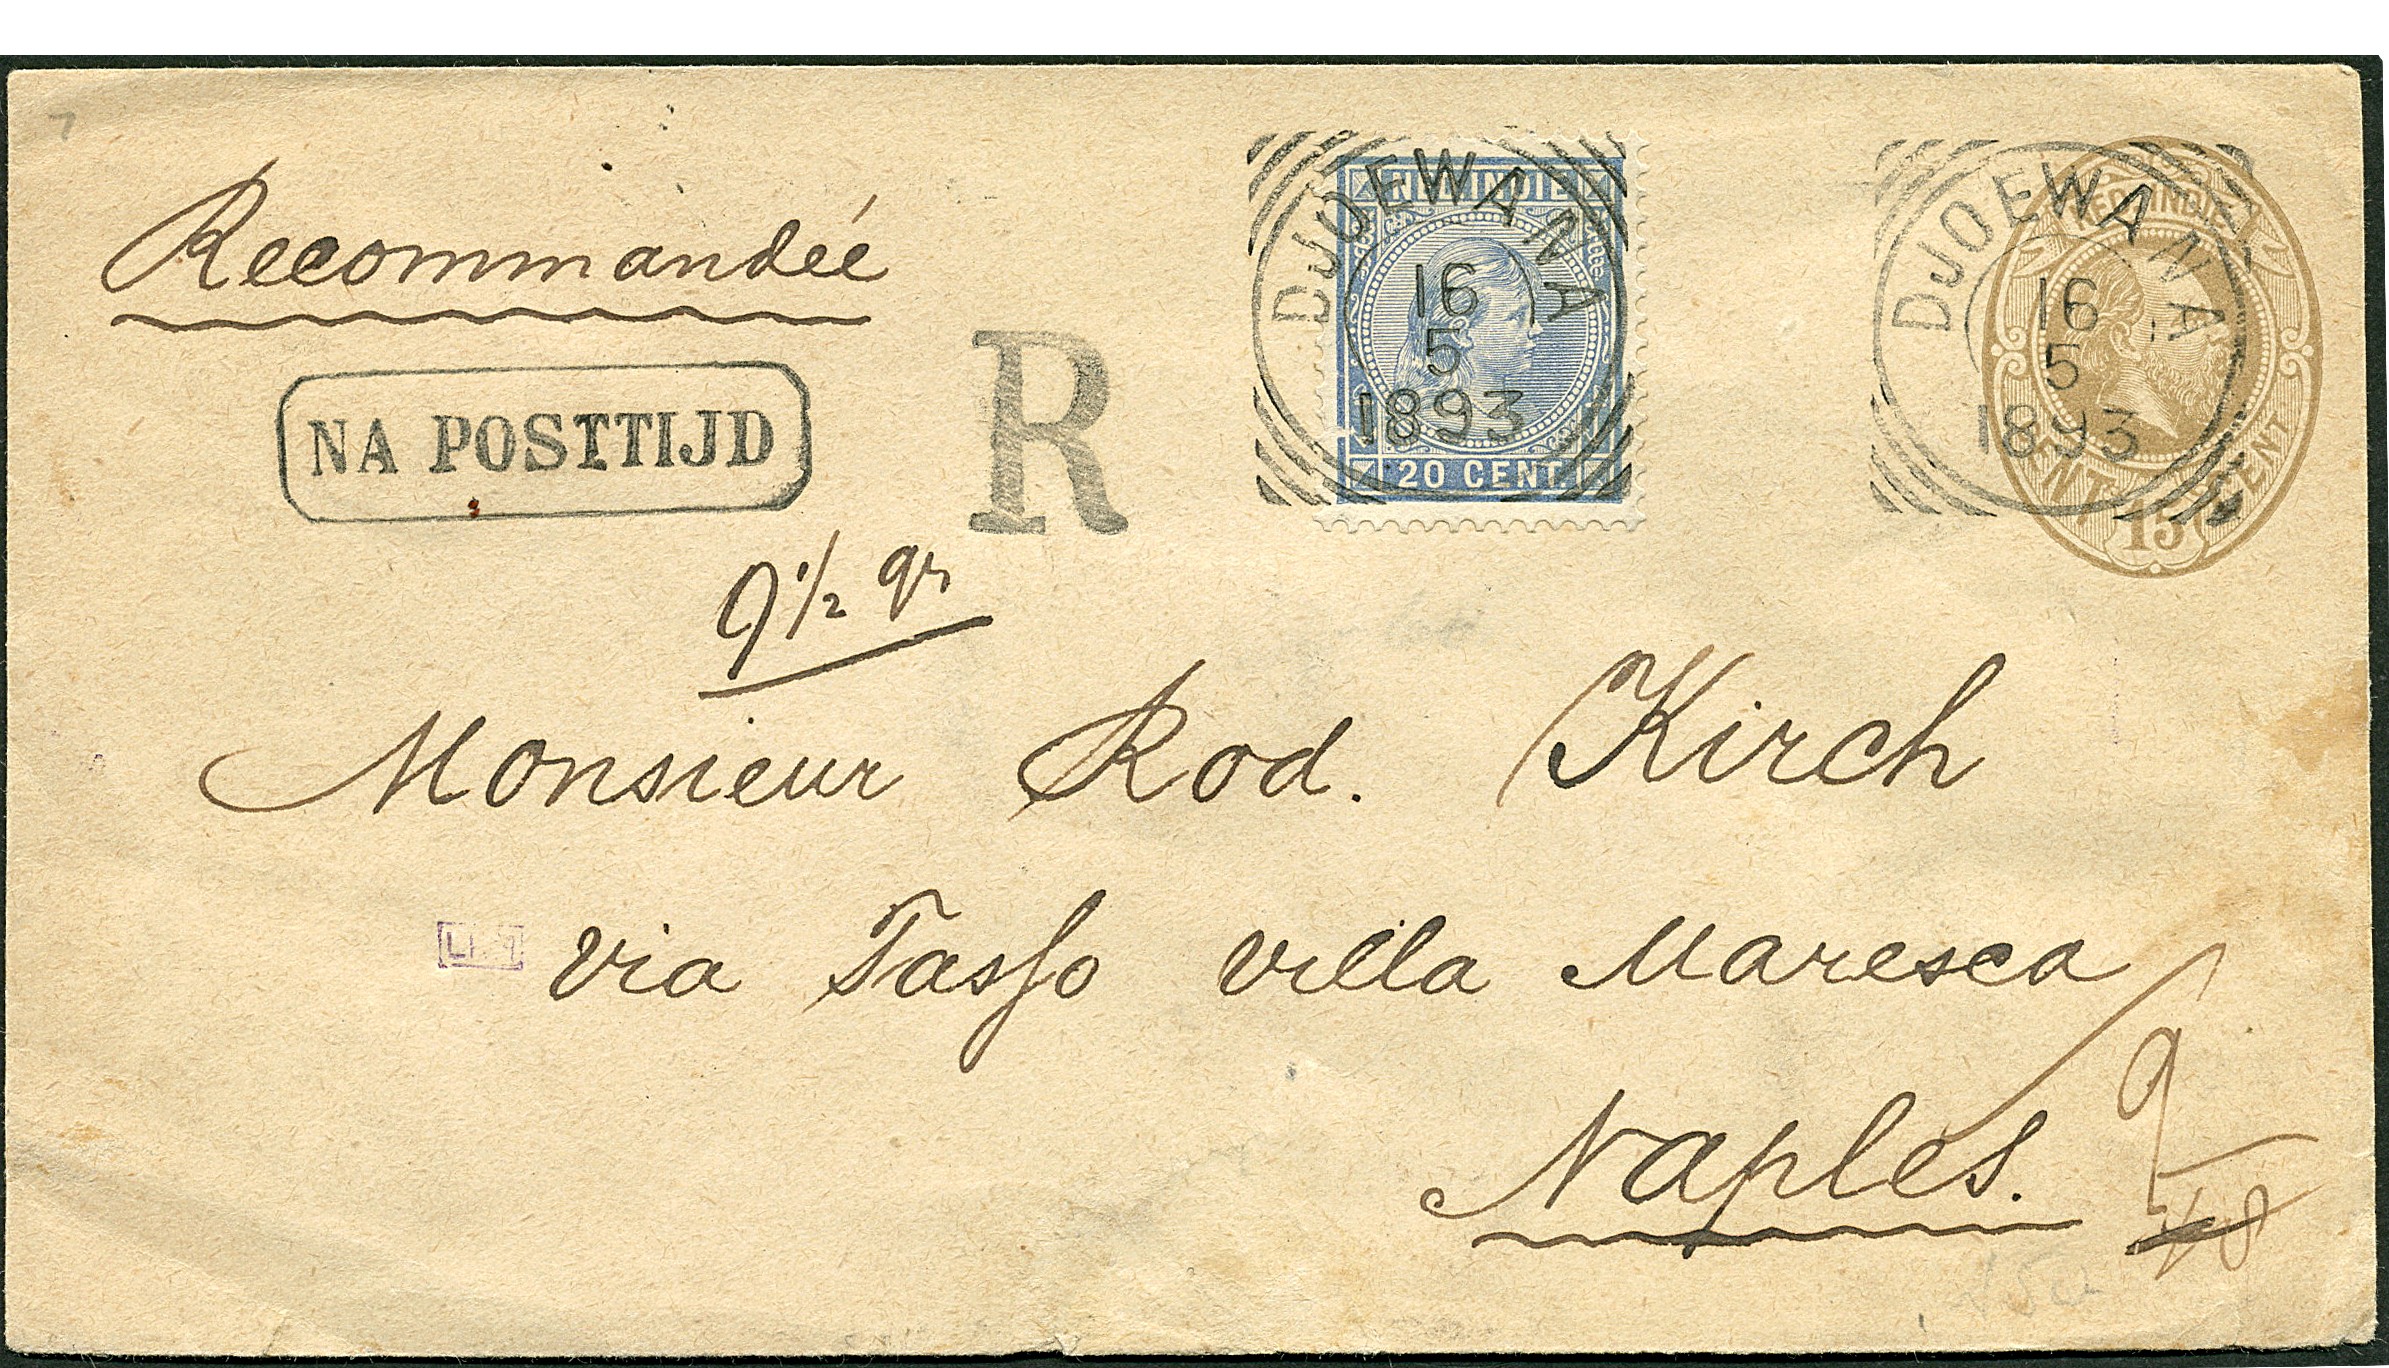 Recommandée
NA POSTTIJD
R
NED. INDIE
20 CENT.
DJOEWANA
16
5
1893
NED. INDIE
CENT 15 CENT
DJOEWANA
16
5
1893
9 1/2 gr
Monsieur Rod. Kirch
via Tasso villa Maresca
Naples.
9